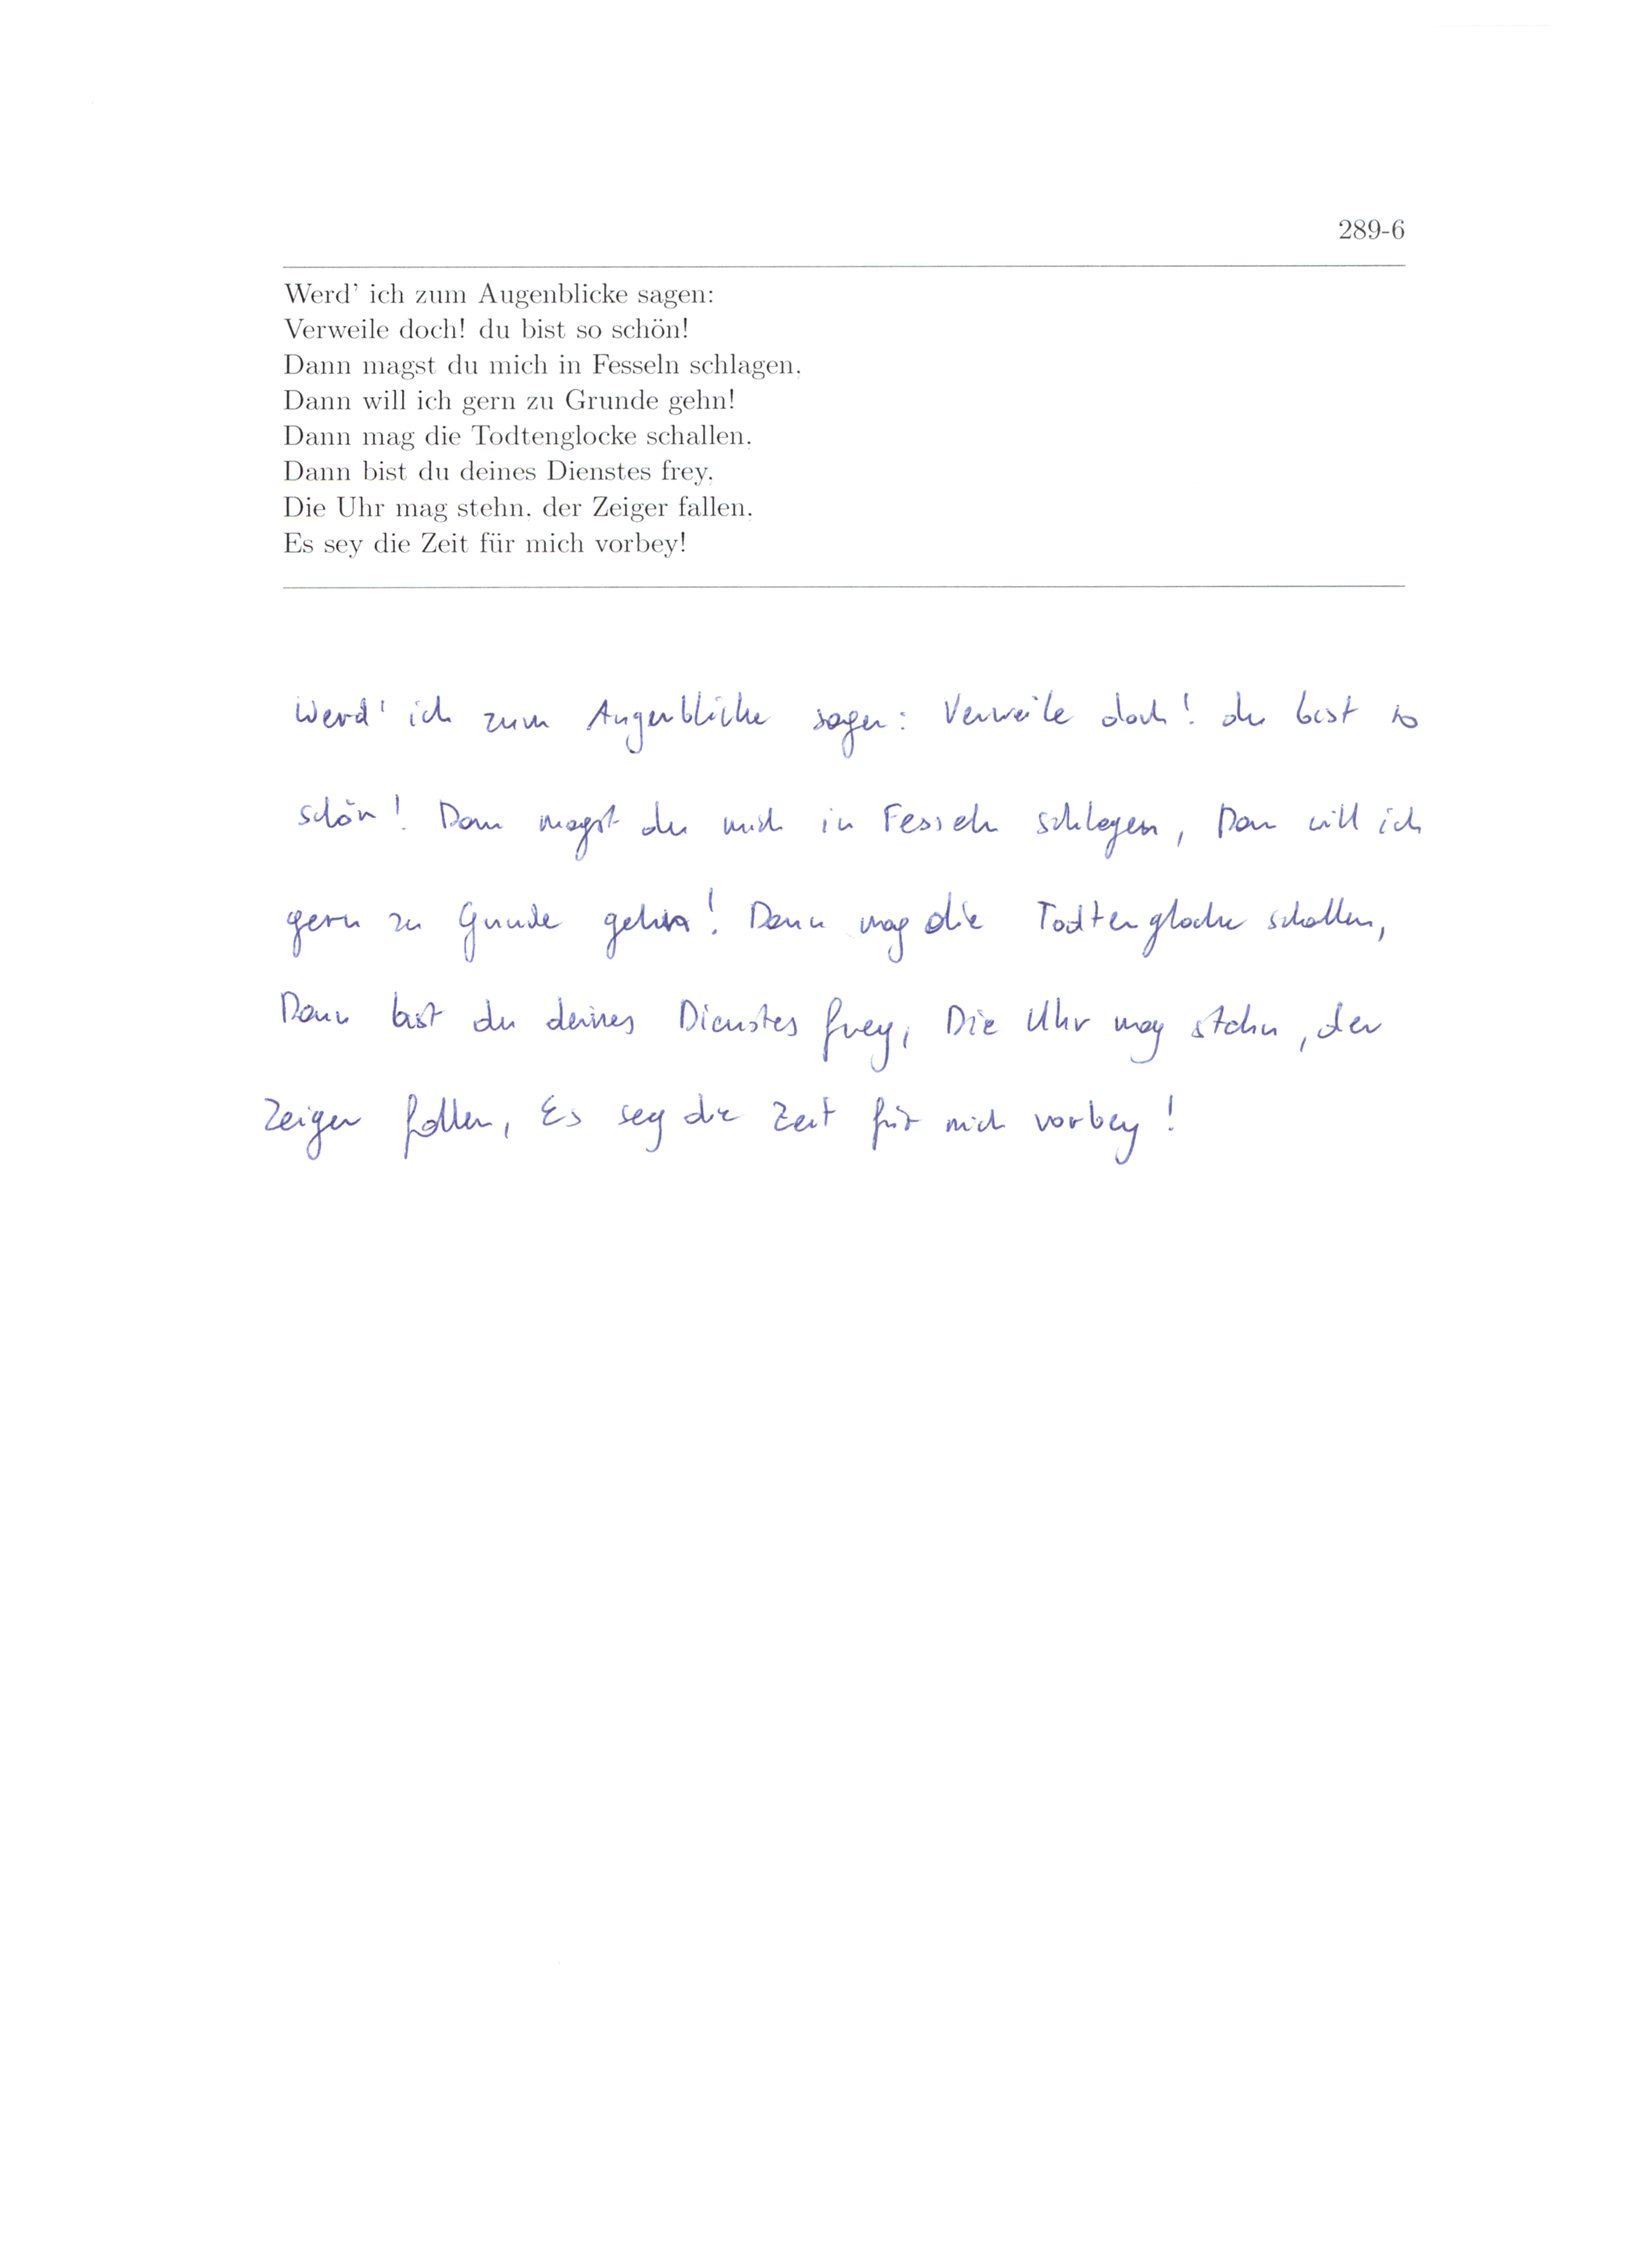 289-6
Werd' ich zum Augenblicke sagen:
Verweile doch! du bist so schön!
Dann magst du mich in Fesseln schlagen,
Dann will ich gern zu Grunde gehn!
Dann mag die Todtenglocke schallen,
Dann bist du deines Dienstes frey,
Die Uhr mag stehn, der Zeiger fallen,
Es sey die Zeit für mich vorbey!
Werd' ich zum Augenblicke sagen: Verweile doch! du bist so
schön! Dann magst du mich in Fesseln schlagen, Dann will ich
gern zu Grunde gehn! Dann mag die Todtenglocke schallen,
Dann bist du deines Dienstes frey, Die Uhr mag stehn, der
Zeiger fallen, Es sey die Zeit für mich vorbey!